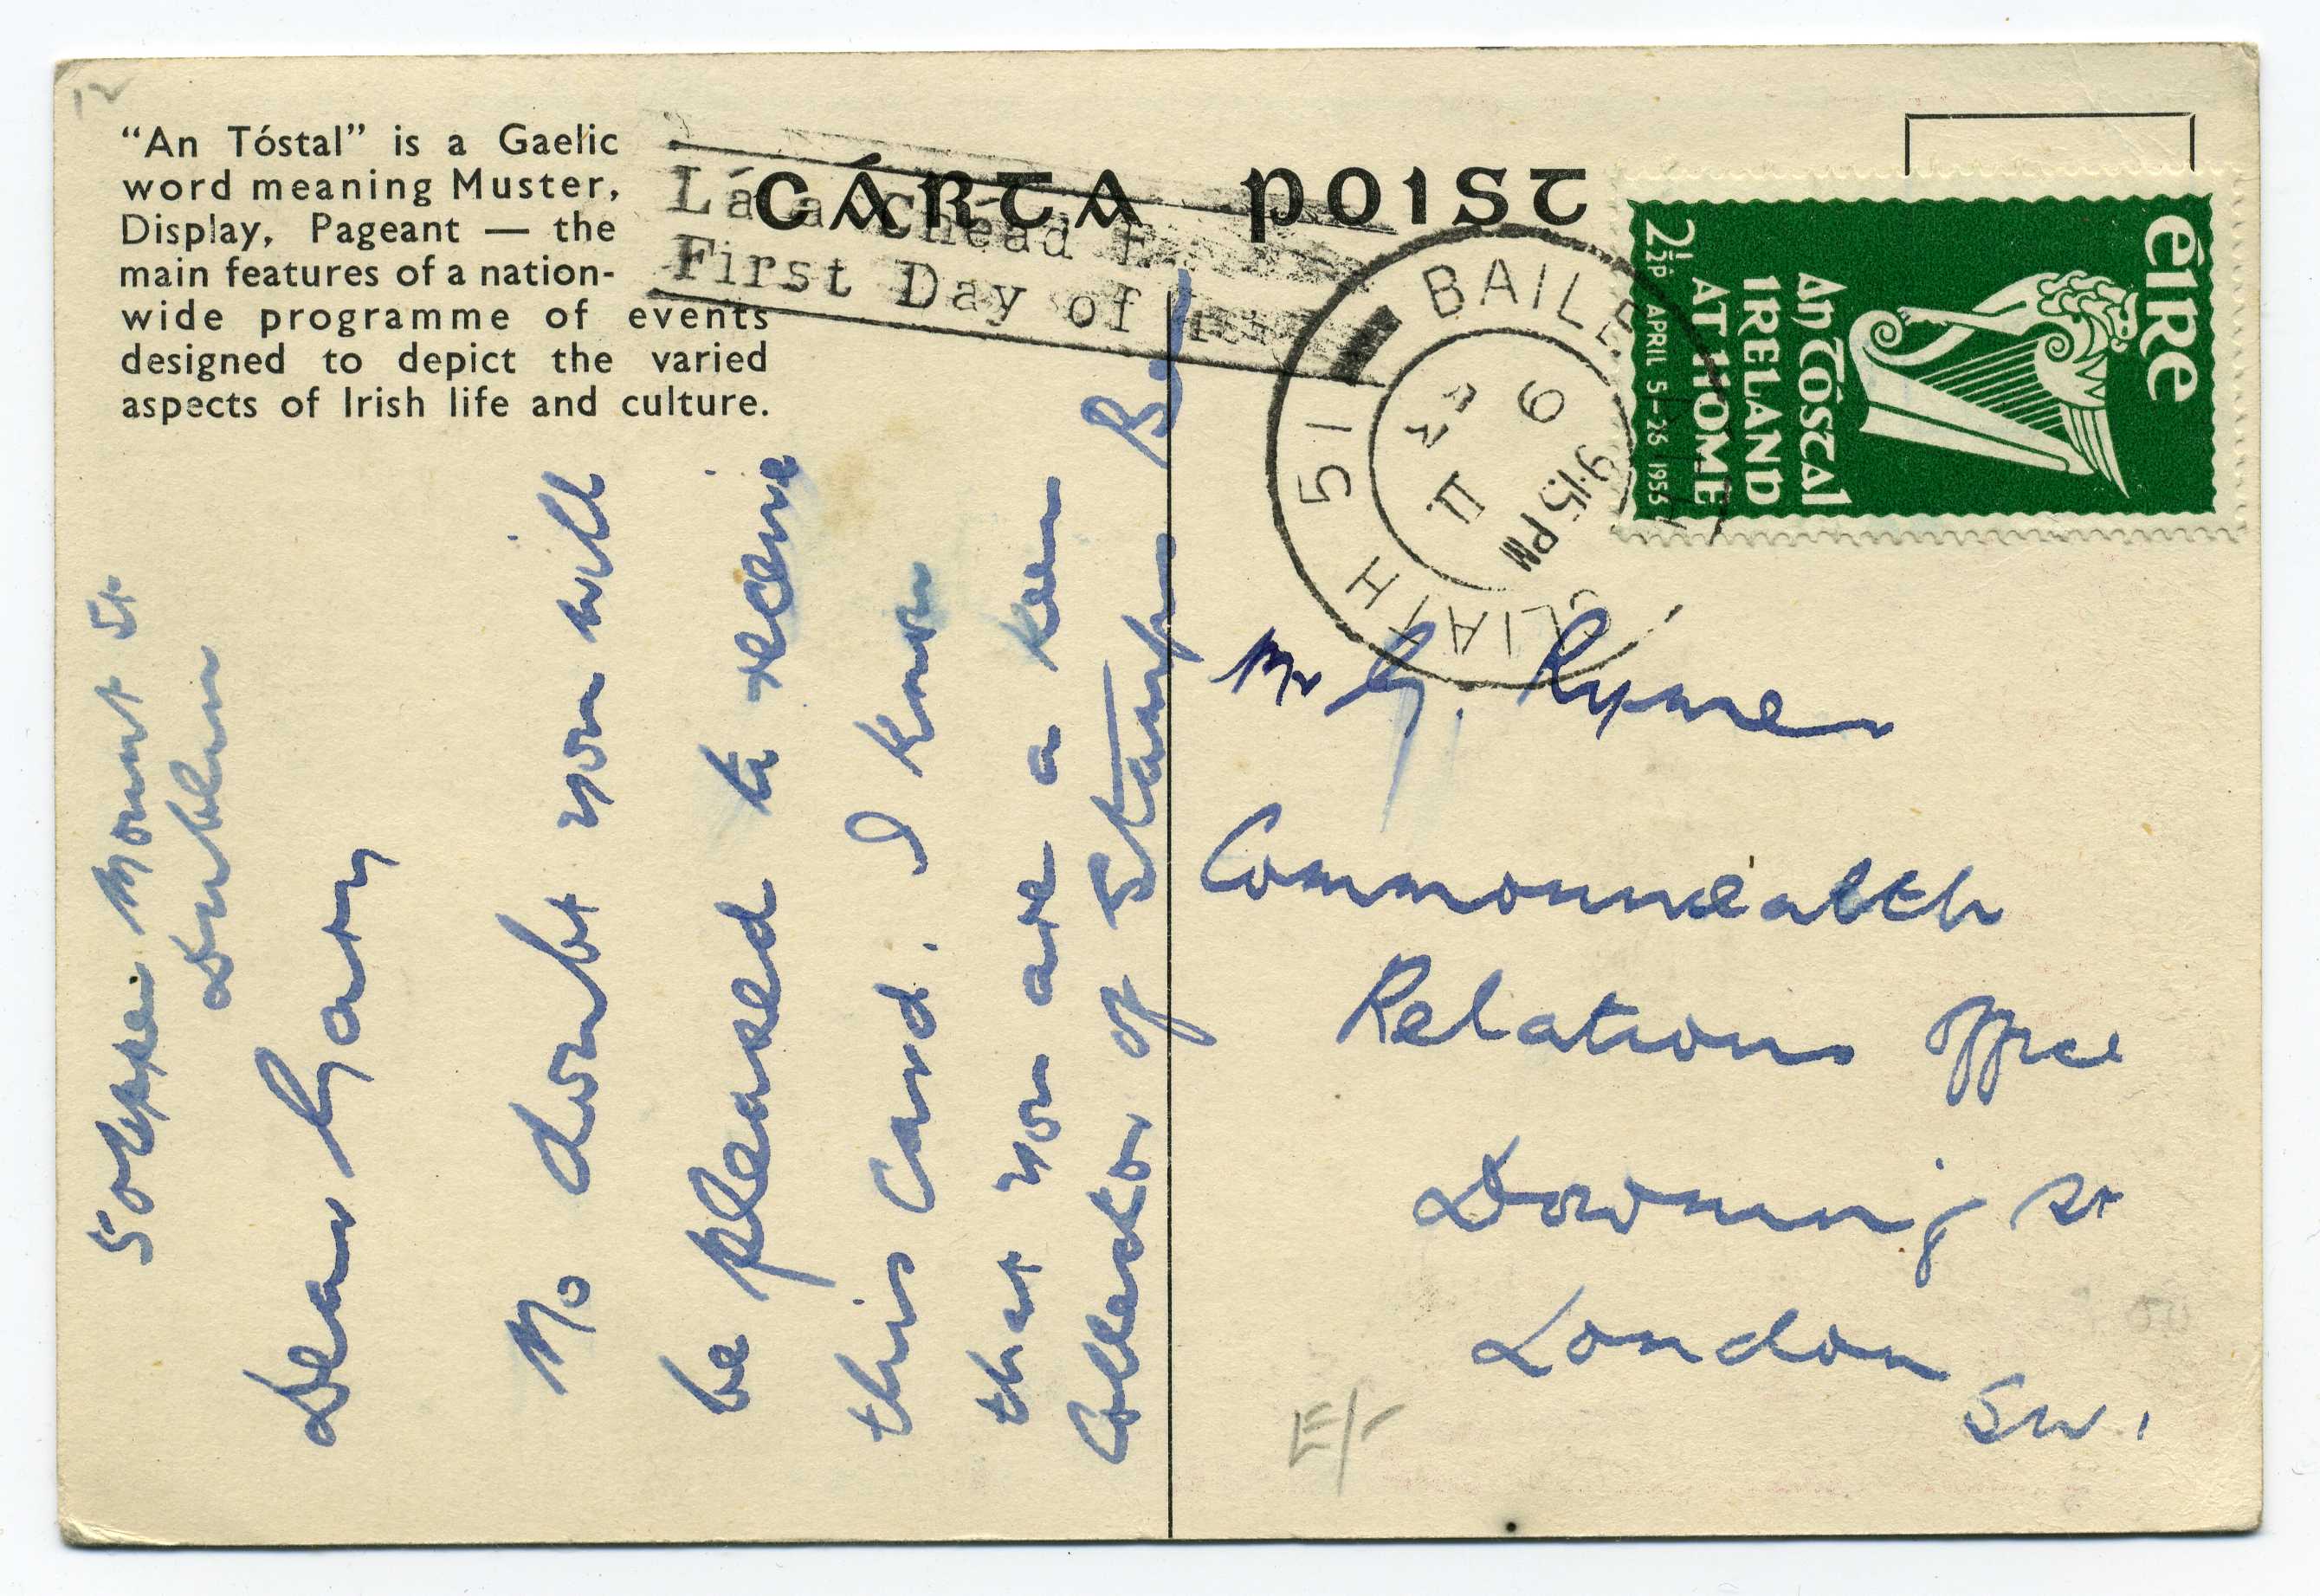 "An Tóstal" is a Gaelic
word meaning Muster,
Display, Pageant — the
main features of a nation-
wide programme of events
designed to depict the varied
aspects of Irish life and culture.
CÁRTA POIST
Lá a Chéad
First Day of
BAILE
CLIATH
51
9.15 PM
éire
An Tóstal
IRELAND
AT HOME
2½P APRIL 5–26 1953
5 Upper Mount St
Dublin
Dear Gary
No doubt you will
be pleased to receive
this card. I know
that you are a keen
Collector of Stamps
Mr G. Rymer
Commonwealth
Relations Office
Downing St
London
SW.1